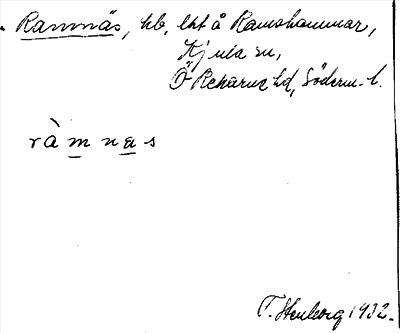 Ramnäs, hb, lht å Ramshammar,
Kjula sn,
Ö Rekarne hd, Söderm. l.
ràmnas
T. Stenborg 1932.